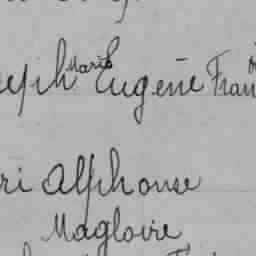 eph Marie Eugène Fran
ri Alphonse
Magloire